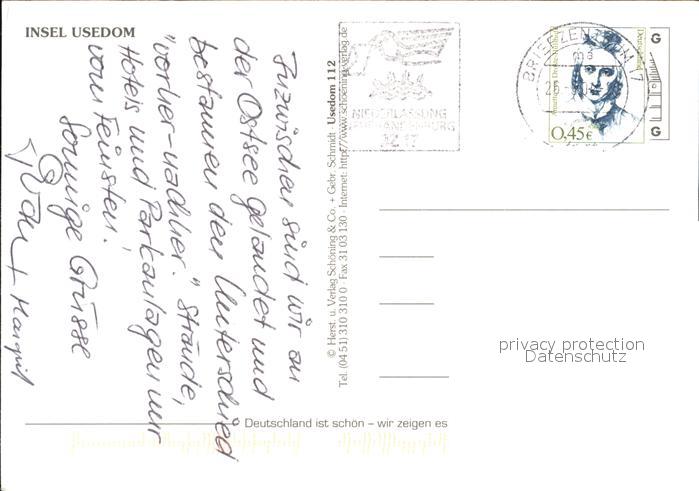 INSEL USEDOM
Inzwischen sind wir an
der Ostsee gelandet und
bestaunen den Unterschied
"vorher-nachher." Strände,
Hotels und Parkanlagen nur
vom Feinsten.
Sonnige Grüsse
+ Margrit
© Herst. u. Verlag Schöning & Co. + Gebr. Schmidt Usedom 112
Tel. (04 51) 310 310 0 · Fax 31 03 130 · Internet: http://www.schoening-verlag.de
Deutschland ist schön – wir zeigen es
NIEDERLASSUNG
BRIEFZENTRUM 17
Deutschland
0,45€
G
G
privacy protection
Datenschutz